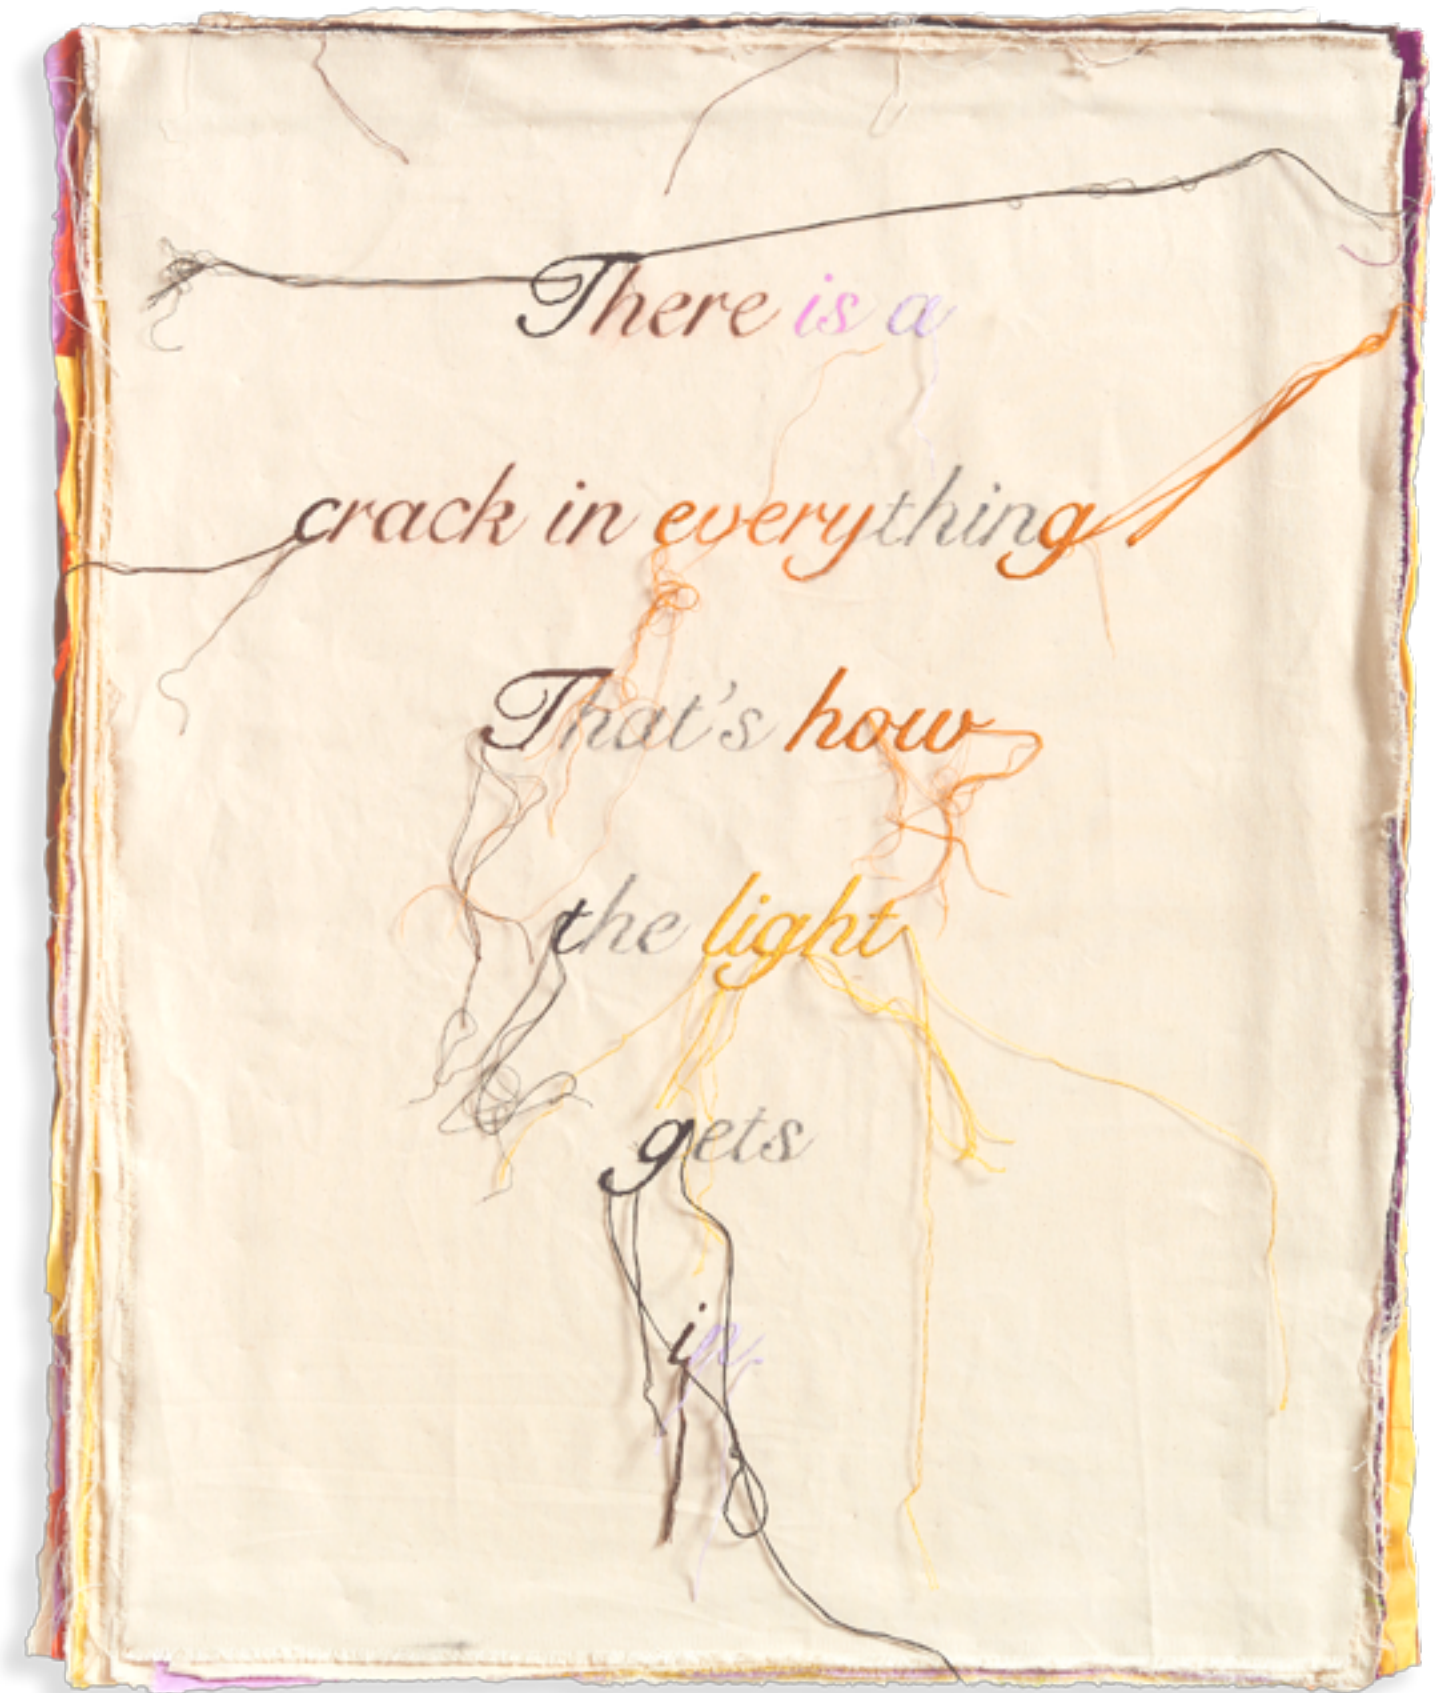 There is a
crack in everything
That's how
the light
gets
in